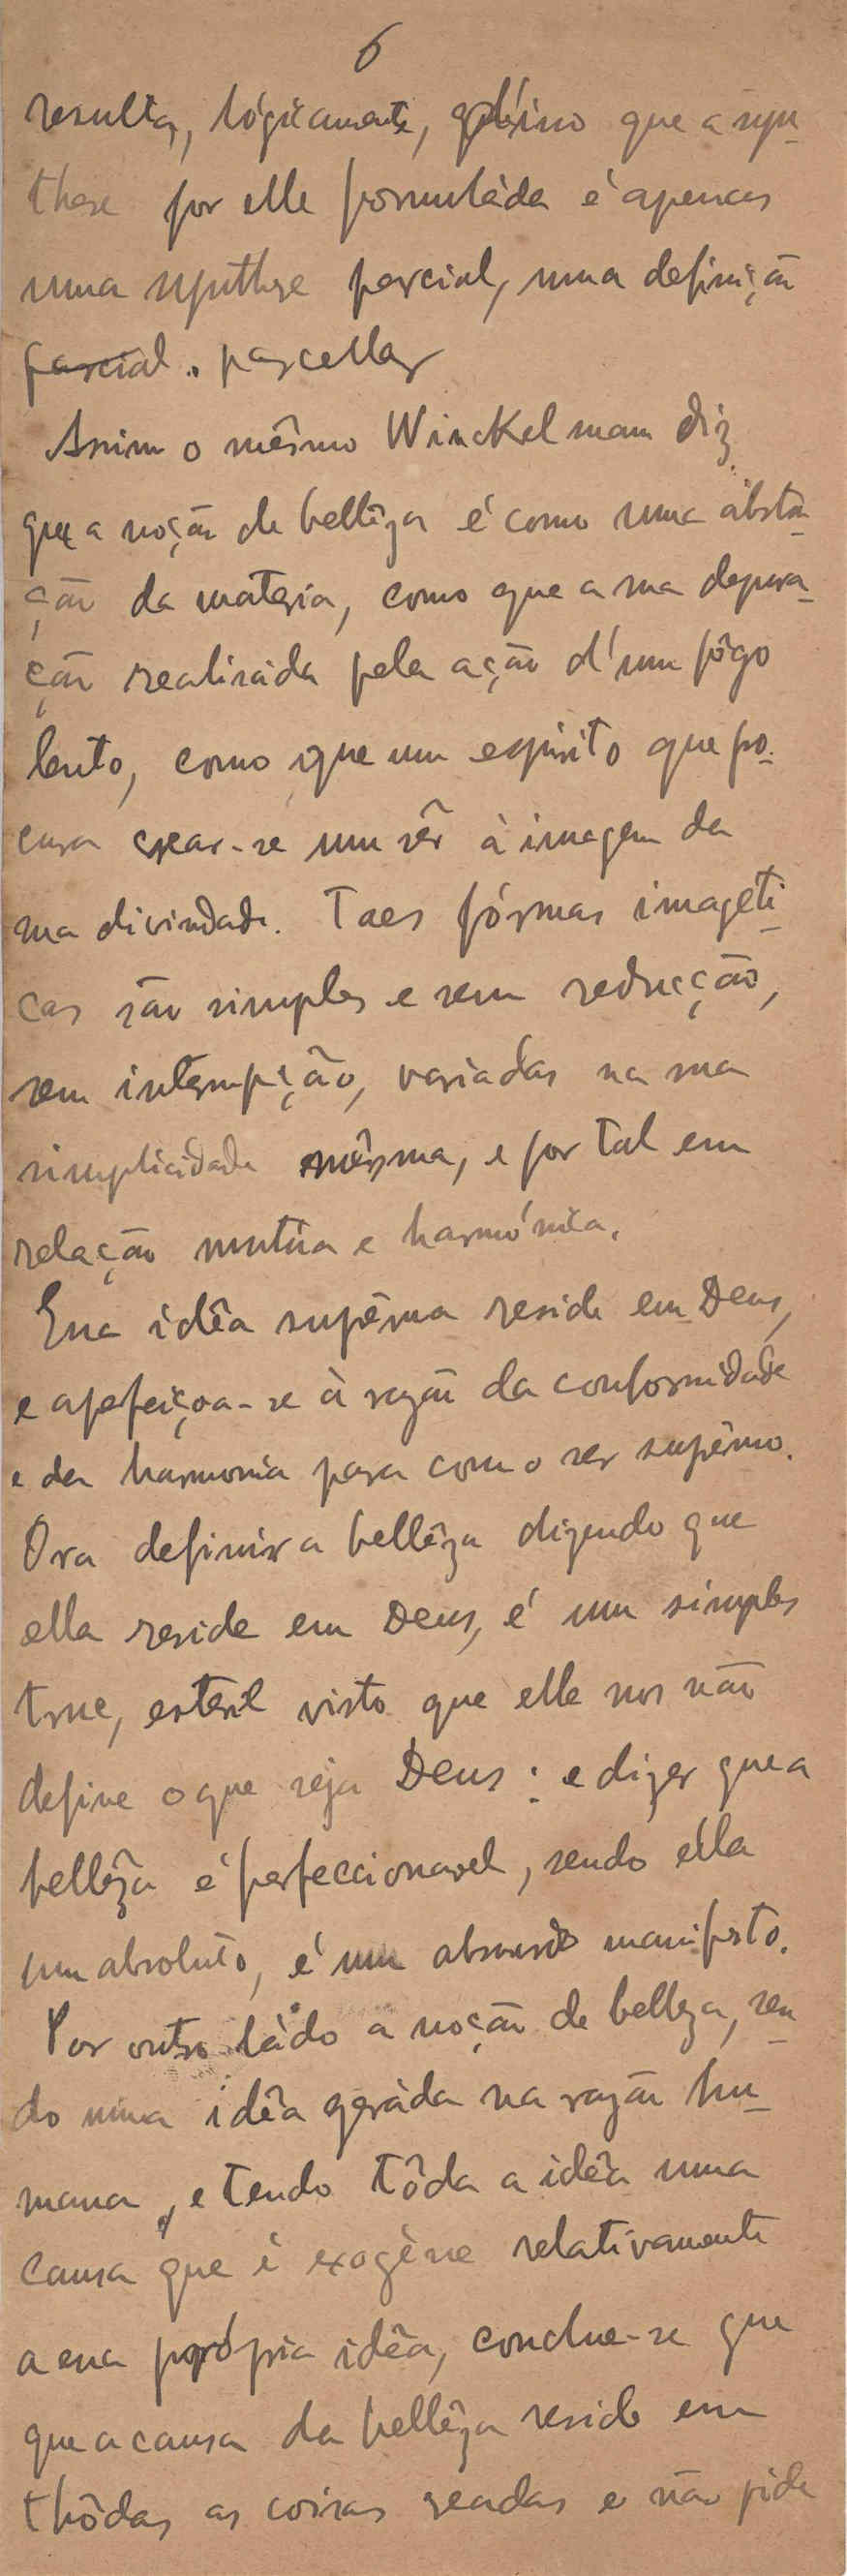 6
resulta, lógicamente, que a syn-
these por elle formuláda é apenas
uma synthese parcial, uma definição
parcial. parcellar
Assim o mêsmo Winckelmann diz
que a noção de bellêza é como uma abstra-
ção da materia, como que a sua depura-
ção realisáda pela ação d'um fôgo
lento, como que um espirito que pro-
cura crear-se um sêr à imagem da
sua divindade. Taes fórmas imageti-
cas são simples e sem reducção,
sem interrupção, variadas na sua
simplicidade mêsma, e por tal em
relação mutúa e harmónica.
Essa idêa suprêma reside em Deus,
e aperfeiçoa-se à razão da conformidade
e da harmonia para com o ser suprêmo.
Ora definir a bellêza dizendo que
ella reside em Deus, é um simples
true, esteril visto que elle nos não
define o que seja Deus: e dizer que a
bellêza é perfeccionavel, sendo ella
um absoluto, é um absurdo manifesto.
Por outro ládo a noção de belleza, sen-
do uma idêa geráda na razão hu-
mana, e tendo tôda a idêa uma
causa que é exogène relativamente
a essa própria idêa, conclue-se que
que a causa da bellêza reside em
thôdas as coisas creadas e não pide